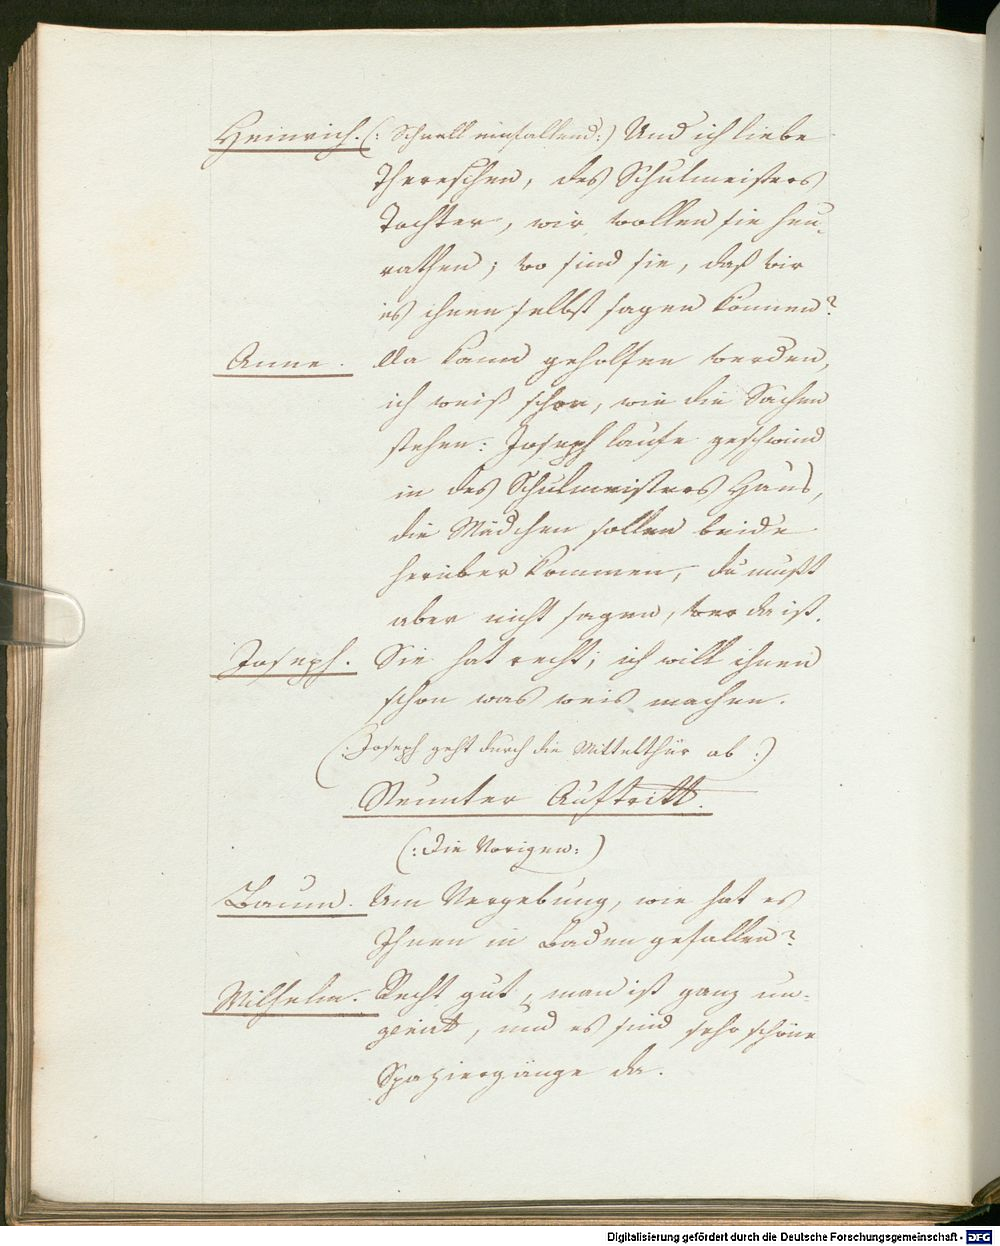 Heinrich. (: Schnell einfallend:) Und ich liebe
Thereschen, des Schulmeisters
Tochter, wir wollen sie heu-
rathen; wo sind sie, daß wir
es ihnen selbst sagen können?
Anne. Da kann geholfen werden,
ich weiß schon, wie die Sachen
stehen: Joseph laufe geschwind
in des Schulmeisters Haus,
die Mädchen sollen beide
herüber kommen, du mußt
aber nicht sagen, wer da ist.
Joseph. Sie hat recht; ich will ihnen
schon was weis machen.
(: Joseph geht durch die Mittelthür ab :)
Neunter Auftritt.
(: Die Vorigen: )
Baum. Um Vergebung, wie hat es
Ihnen in Baden gefallen?
Wilhelm. Recht gut, man ist ganz un-
genirt, und es sind sehr schöne
Spaziergänge da.
Digitalisierung gefördert durch die Deutsche Forschungsgemeinschaft - DFG